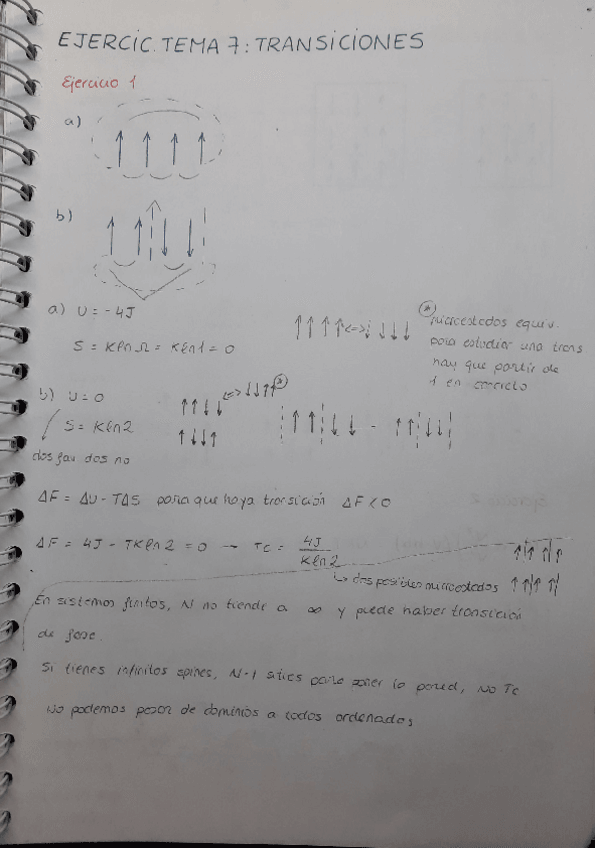 EJERCIC. TEMA 7: TRANSICIONES
Ejercicio 1
a)
b)
a) U = -4J
S = K ln Ω = K ln 1 = 0
↑ ↑ ↑ ↑ <=> ↓ ↓ ↓ ↓
* microestados equiv.
para estudiar una trans
hay que partir de
1 en concreto
b) U = 0
↑ ↑ ↓ ↓ <=> ↓ ↓ ↑ ↑ *
S = K ln 2
↑ ↓ ↓ ↑
dos fav dos no
ΔF = ΔU - TΔS para que haya transición ΔF < 0
ΔF = 4J - TK ln 2 = 0 → Tc = 4J / K ln 2
↳ dos posibles microestados
En sistemas finitos, N no tiende a ∞ y puede haber transición
de fase.
Si tienes infinitos spines, N-1 sitios para poner la pared, No Tc
No podemos pasar de dominios a todos ordenados